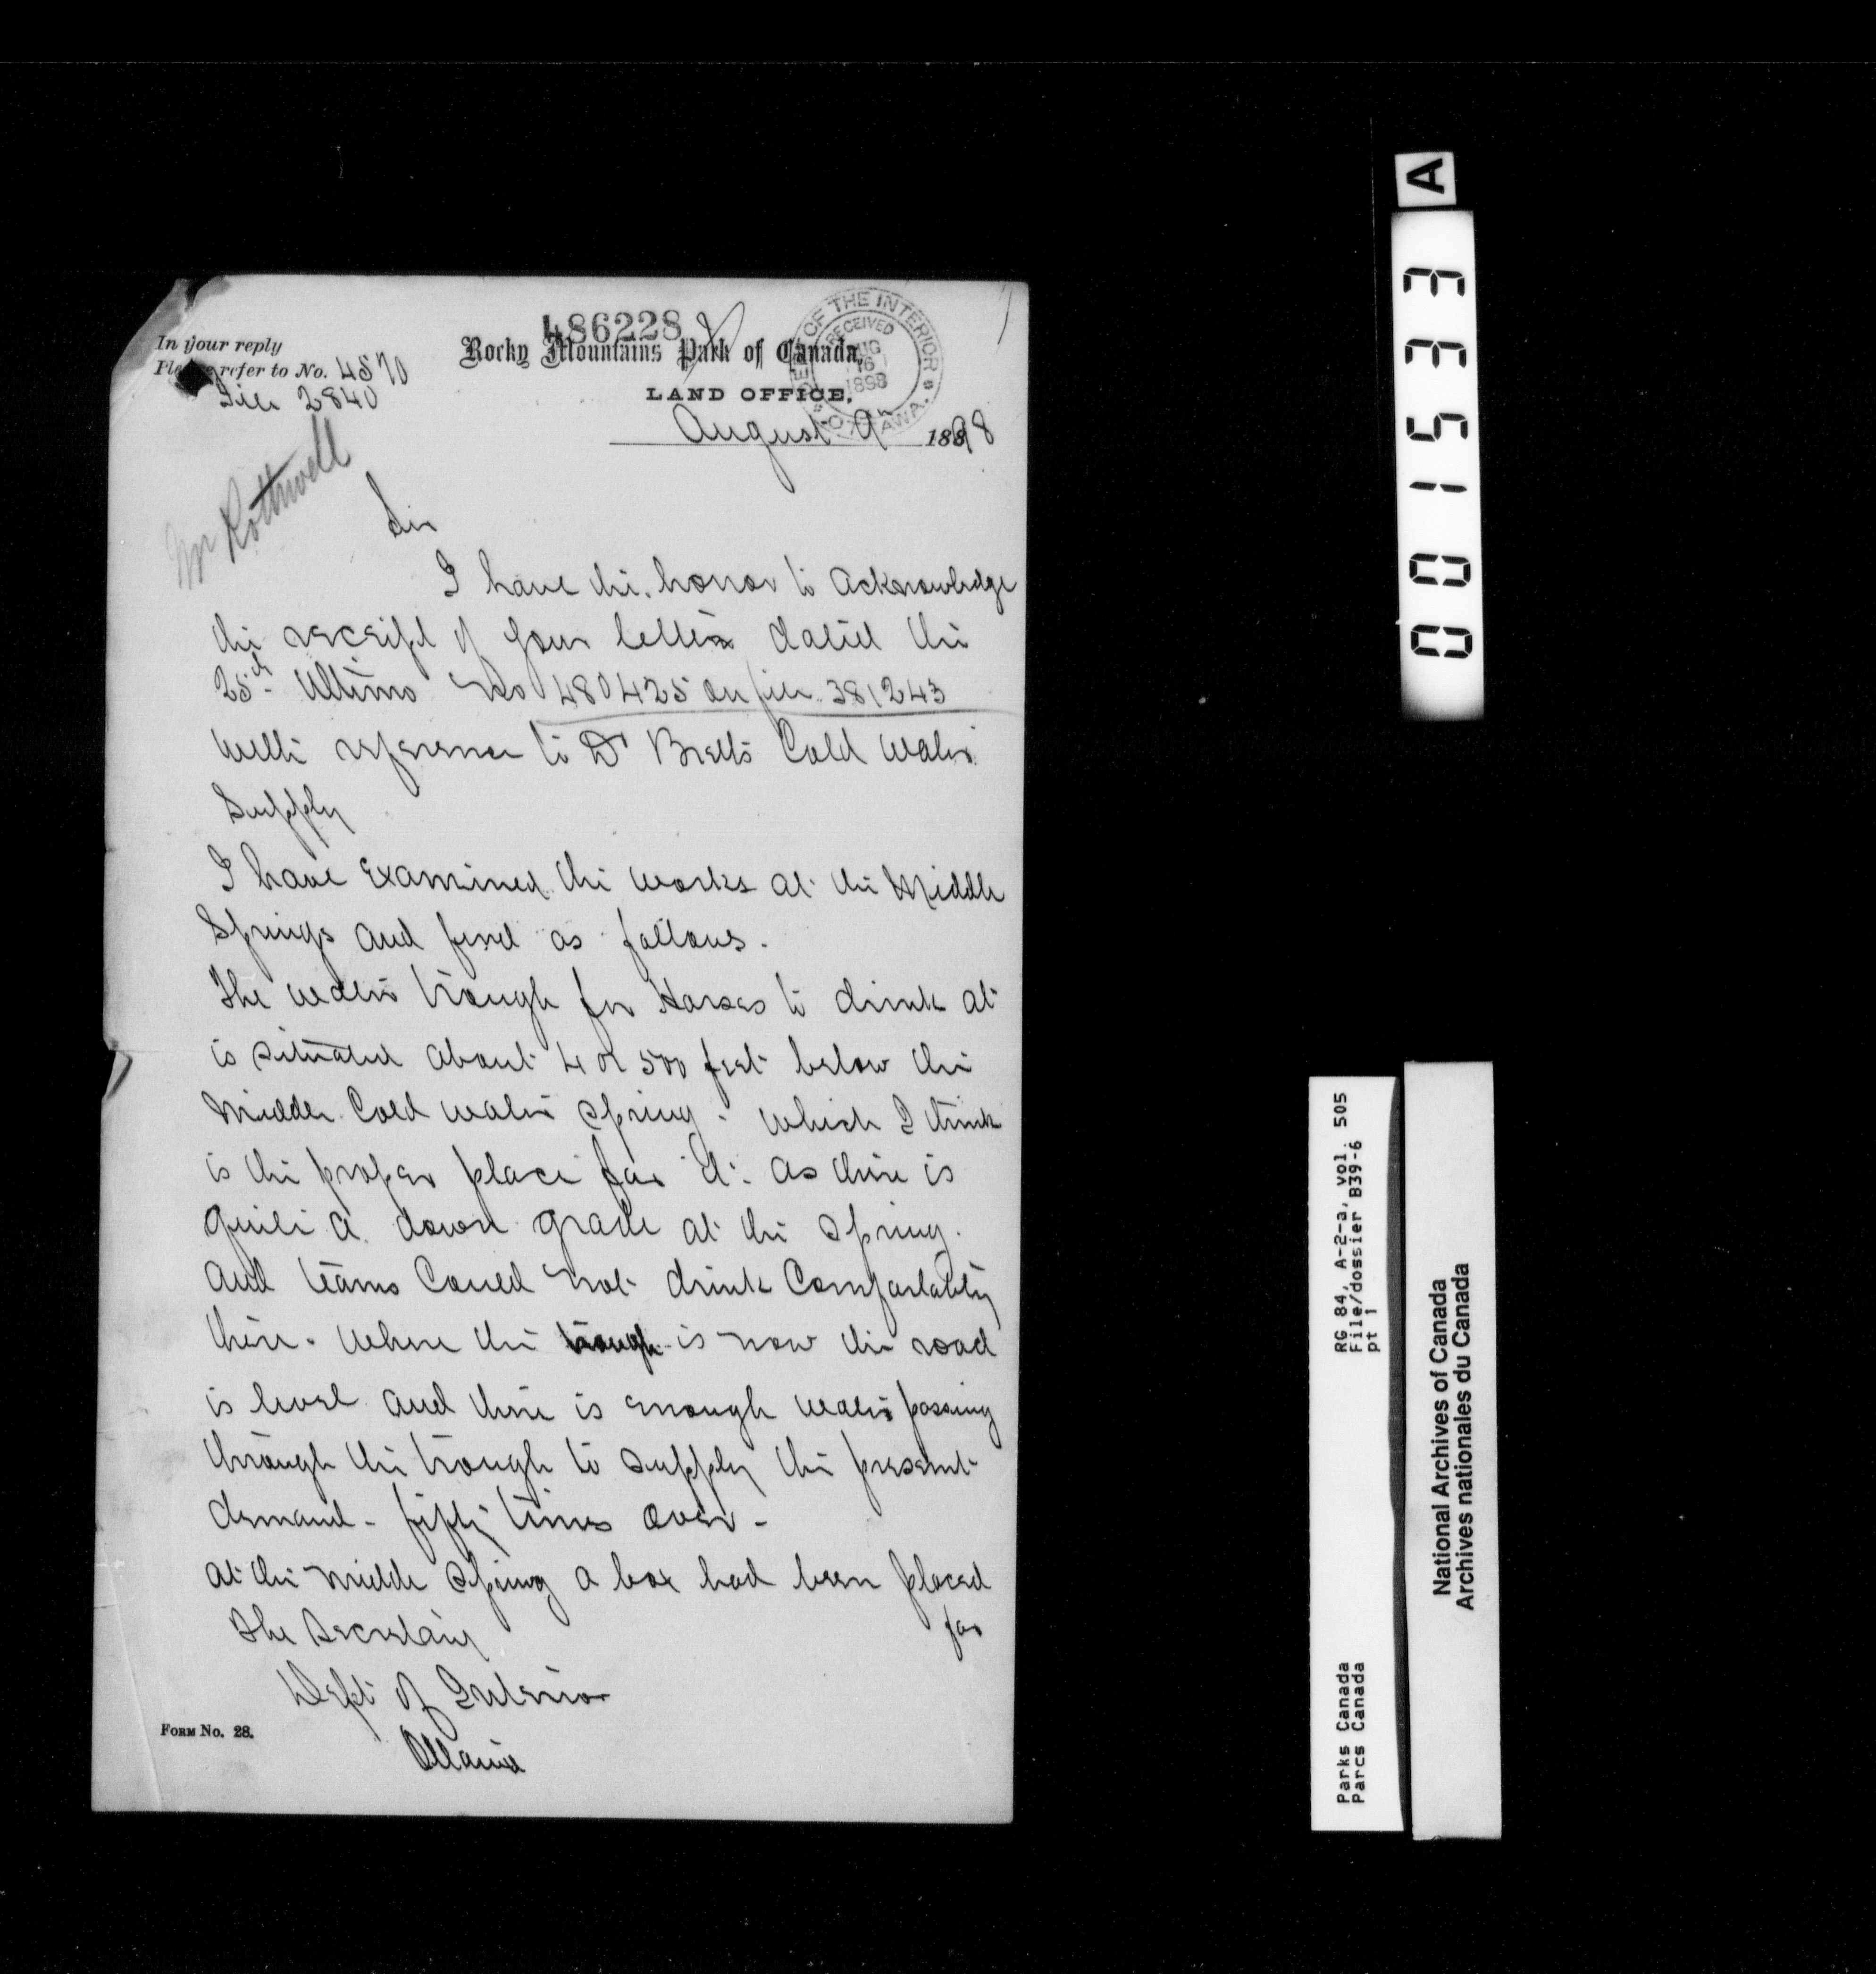 486228
In your reply
Please refer to No. 4570
File 2840
Rocky Mountains Park of Canada,
LAND OFFICE,
DEPT OF THE INTERIOR
RECEIVED
AUG
16
1898
OTTAWA.
August 9th 1898
Mr Rothwell
Sir
I have the honor to acknowledge
the receipt of your letter dated the
25th Ultimo No 480425 on file 381243
with reference to Dr Bretts Cold water
Supply
I have Examined the works at the Middle
Springs and find as follows.
The water trough for Horses to drink at
is situated about 4 or 500 feet below the
Middle Cold water spring - which I think
is the proper place for it. as there is
quite a down grade at the spring.
and teams Could not drink Comfortably
there. Where the trough is now the road
is level and there is enough water passing
through the trough to supply the present
demand - fifty times over -
at the middle spring a box had been placed
for
The Secretary
Dept of Interior
Ottawa
FORM No. 28.
A
001533
RG 84, A-2-a, vol. 505
File/dossier B39-6
pt 1
Parks Canada
Parcs Canada
National Archives of Canada
Archives nationales du Canada